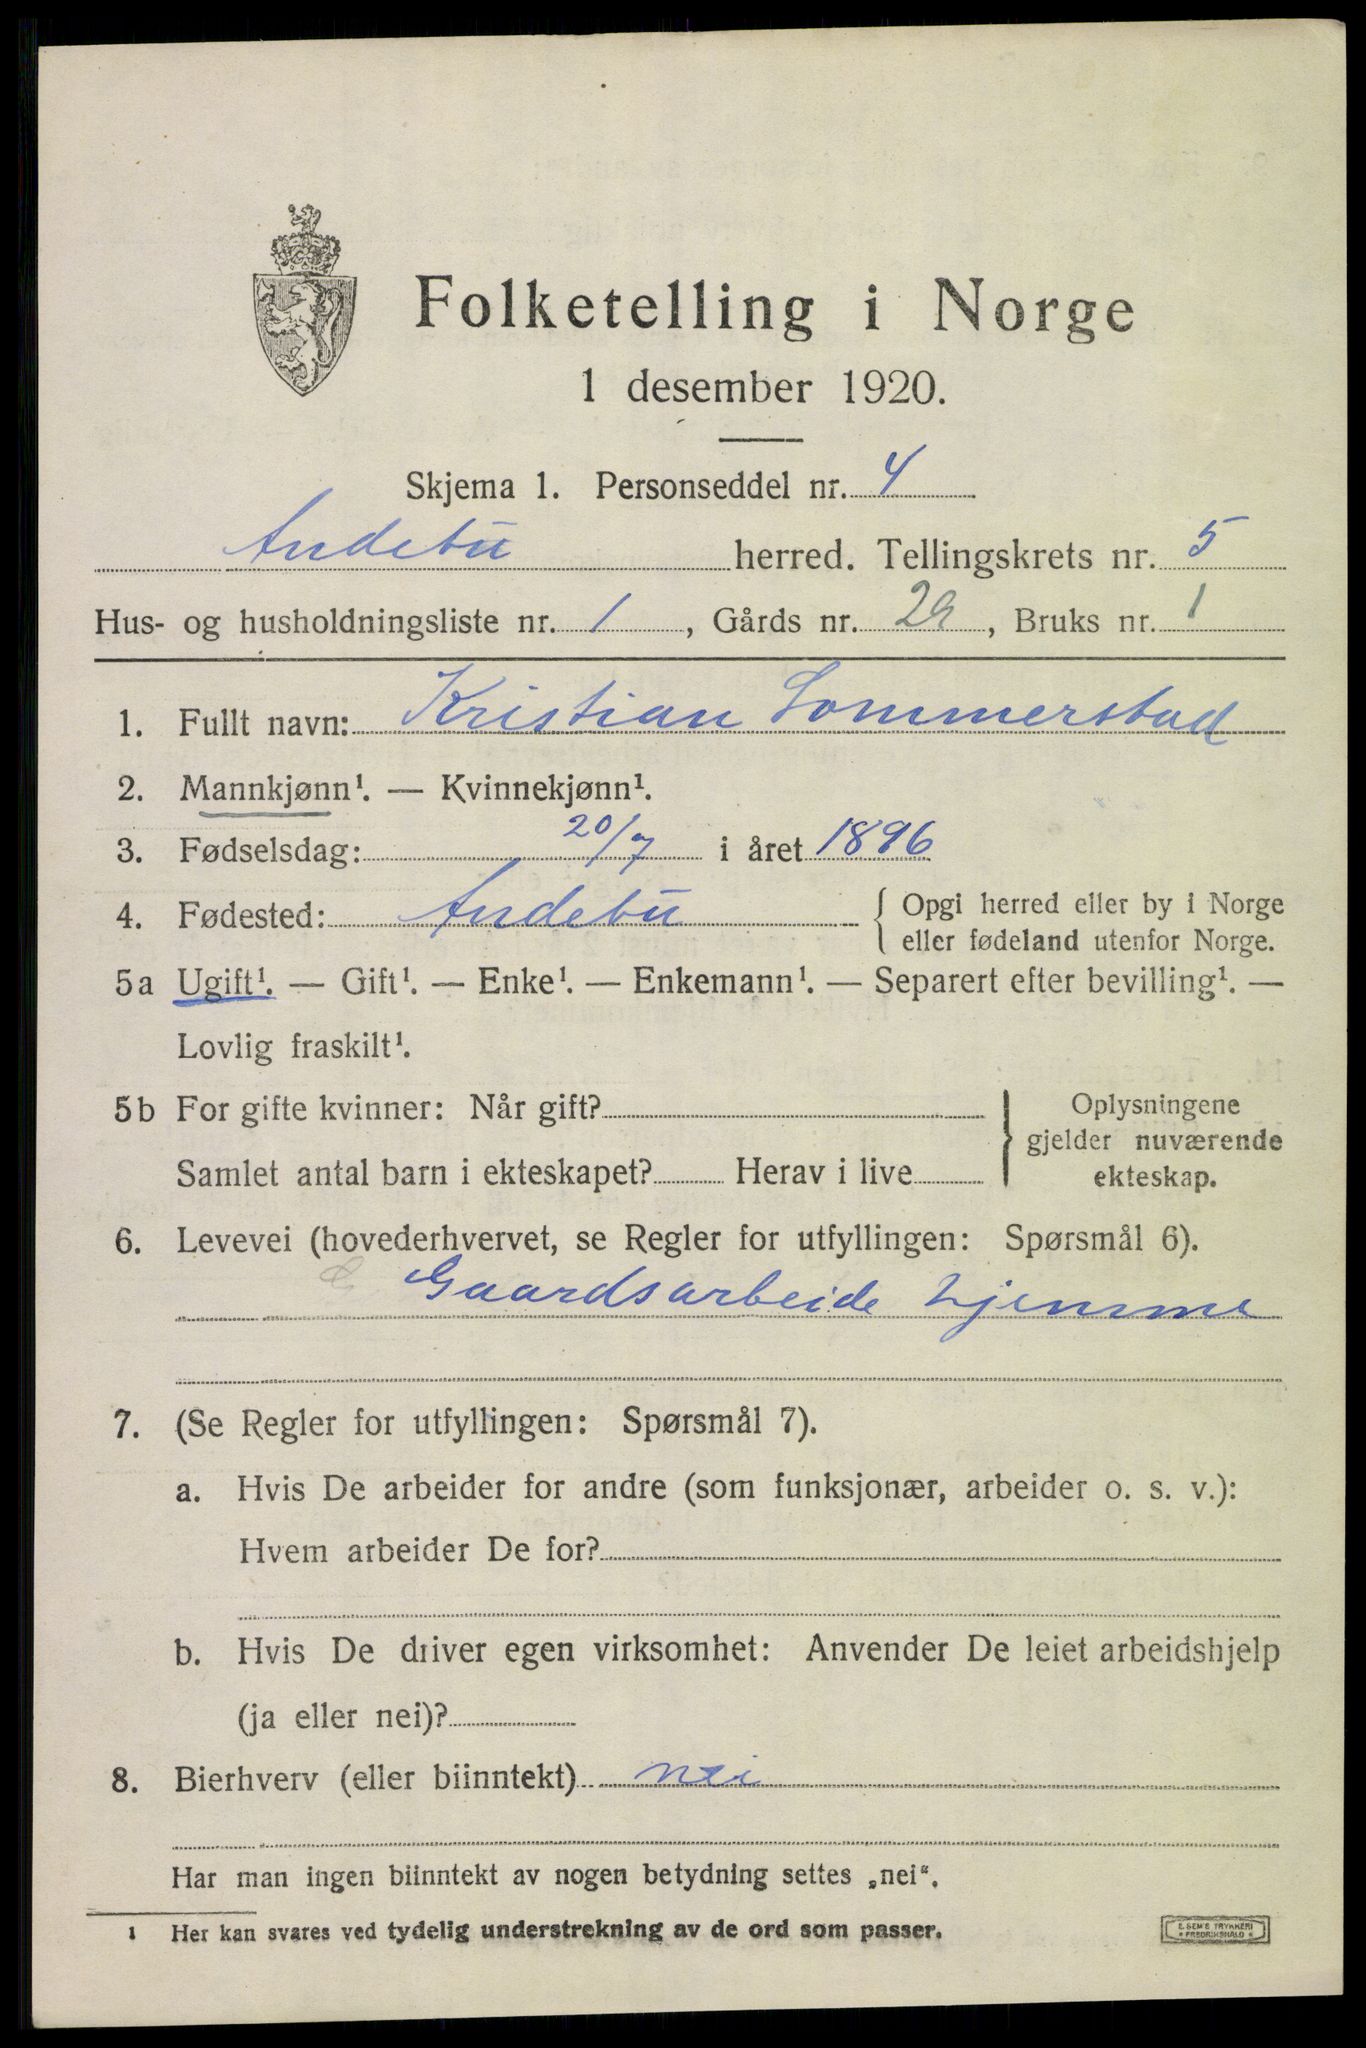 Folketelling i Norge
1 desember 1920.
Skjema 1. Personseddel nr. 4
Andebu herred. Tellingskrets nr. 5
Hus- og husholdningsliste nr. 1, Gårds nr. 29, Bruks nr. 1
1. Fullt navn: Kristian Sommerstad
2. Mannkjønn¹. — Kvinnekjønn¹.
3. Fødselsdag: 20/7 i året 1896
4. Fødested: Andebu { Opgi herred eller by i Norge
eller fødeland utenfor Norge.
5a Ugift¹. — Gift¹. — Enke¹. — Enkemann¹. — Separert efter bevilling¹. —
Lovlig fraskilt¹.
5b For gifte kvinner: Når gift? } Oplysningene
gjelder nuværende
Samlet antal barn i ekteskapet? Herav i live
ekteskap.
6. Levevei (hovederhvervet, se Regler for utfyllingen: Spørsmål 6).
Gaardsarbeide hjemme
7. (Se Regler for utfyllingen: Spørsmål 7).
a. Hvis De arbeider for andre (som funksjonær, arbeider o. s. v.):
Hvem arbeider De for?
b. Hvis De driver egen virksomhet: Anvender De leiet arbeidshjelp
(ja eller nei)?
8. Bierhverv (eller biinntekt) nei
Har man ingen biinntekt av nogen betydning settes „nei“.
1 Her kan svares ved tydelig understrekning av de ord som passer.
E. SEM'S TRYKKERI
FREDRIKSHALD